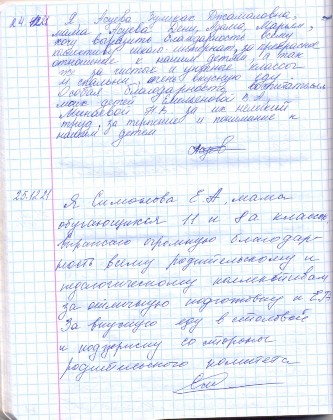 24.12.21 Я, Асуева Зулихан Джамалаевна,
мама Асуева Дени, Арана, Марьям,
хочу выразить благодарность всему
коллективу школы-интернат, за прекрасное
отношение к нашим детям, а так
же за чистые и уютные классы
и спальни, очень вкусную еду.
Особая благодарность воспитателям
моих детей В.А.
Минаевой Н.В. за их нелегкий
труд, за терпение и понимание к
нашим детям
25.12.21 Я Симонова Е А, мама
обучающихся 11 и 8а класса
Приношу огромную благодар-
ность всему родительскому и
педагогическому коллективам
за отличную подготовку к
За вкусную еду в столовой
и поддержку со стороны
родительского комитета